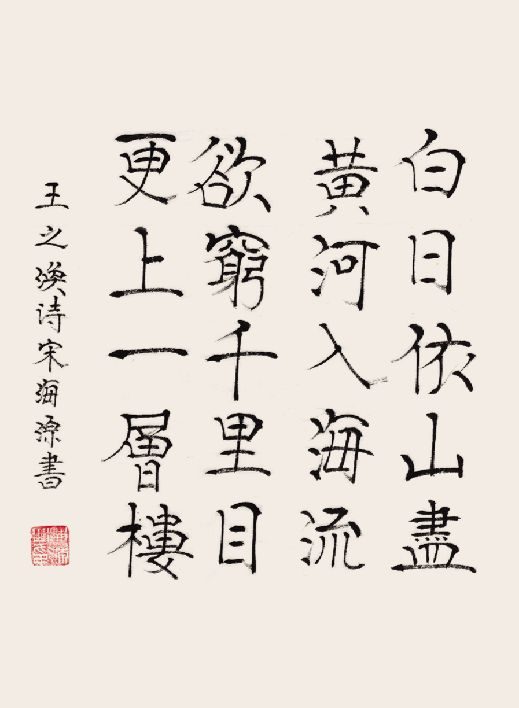 白日依山盡
黄河入海流
欲窮千里目
更上一層樓
王之渙诗宋海源書